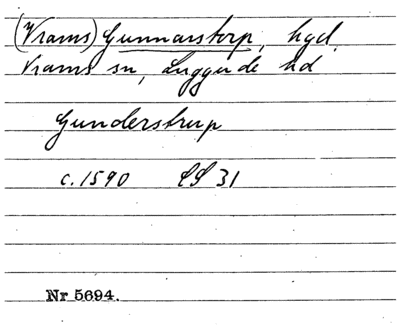 (Vrams) Gunnarstorp, hgd.
Vrams sn, Luggude hd
Gunderstrup
c. 1590 SS 31
Nr 5694.